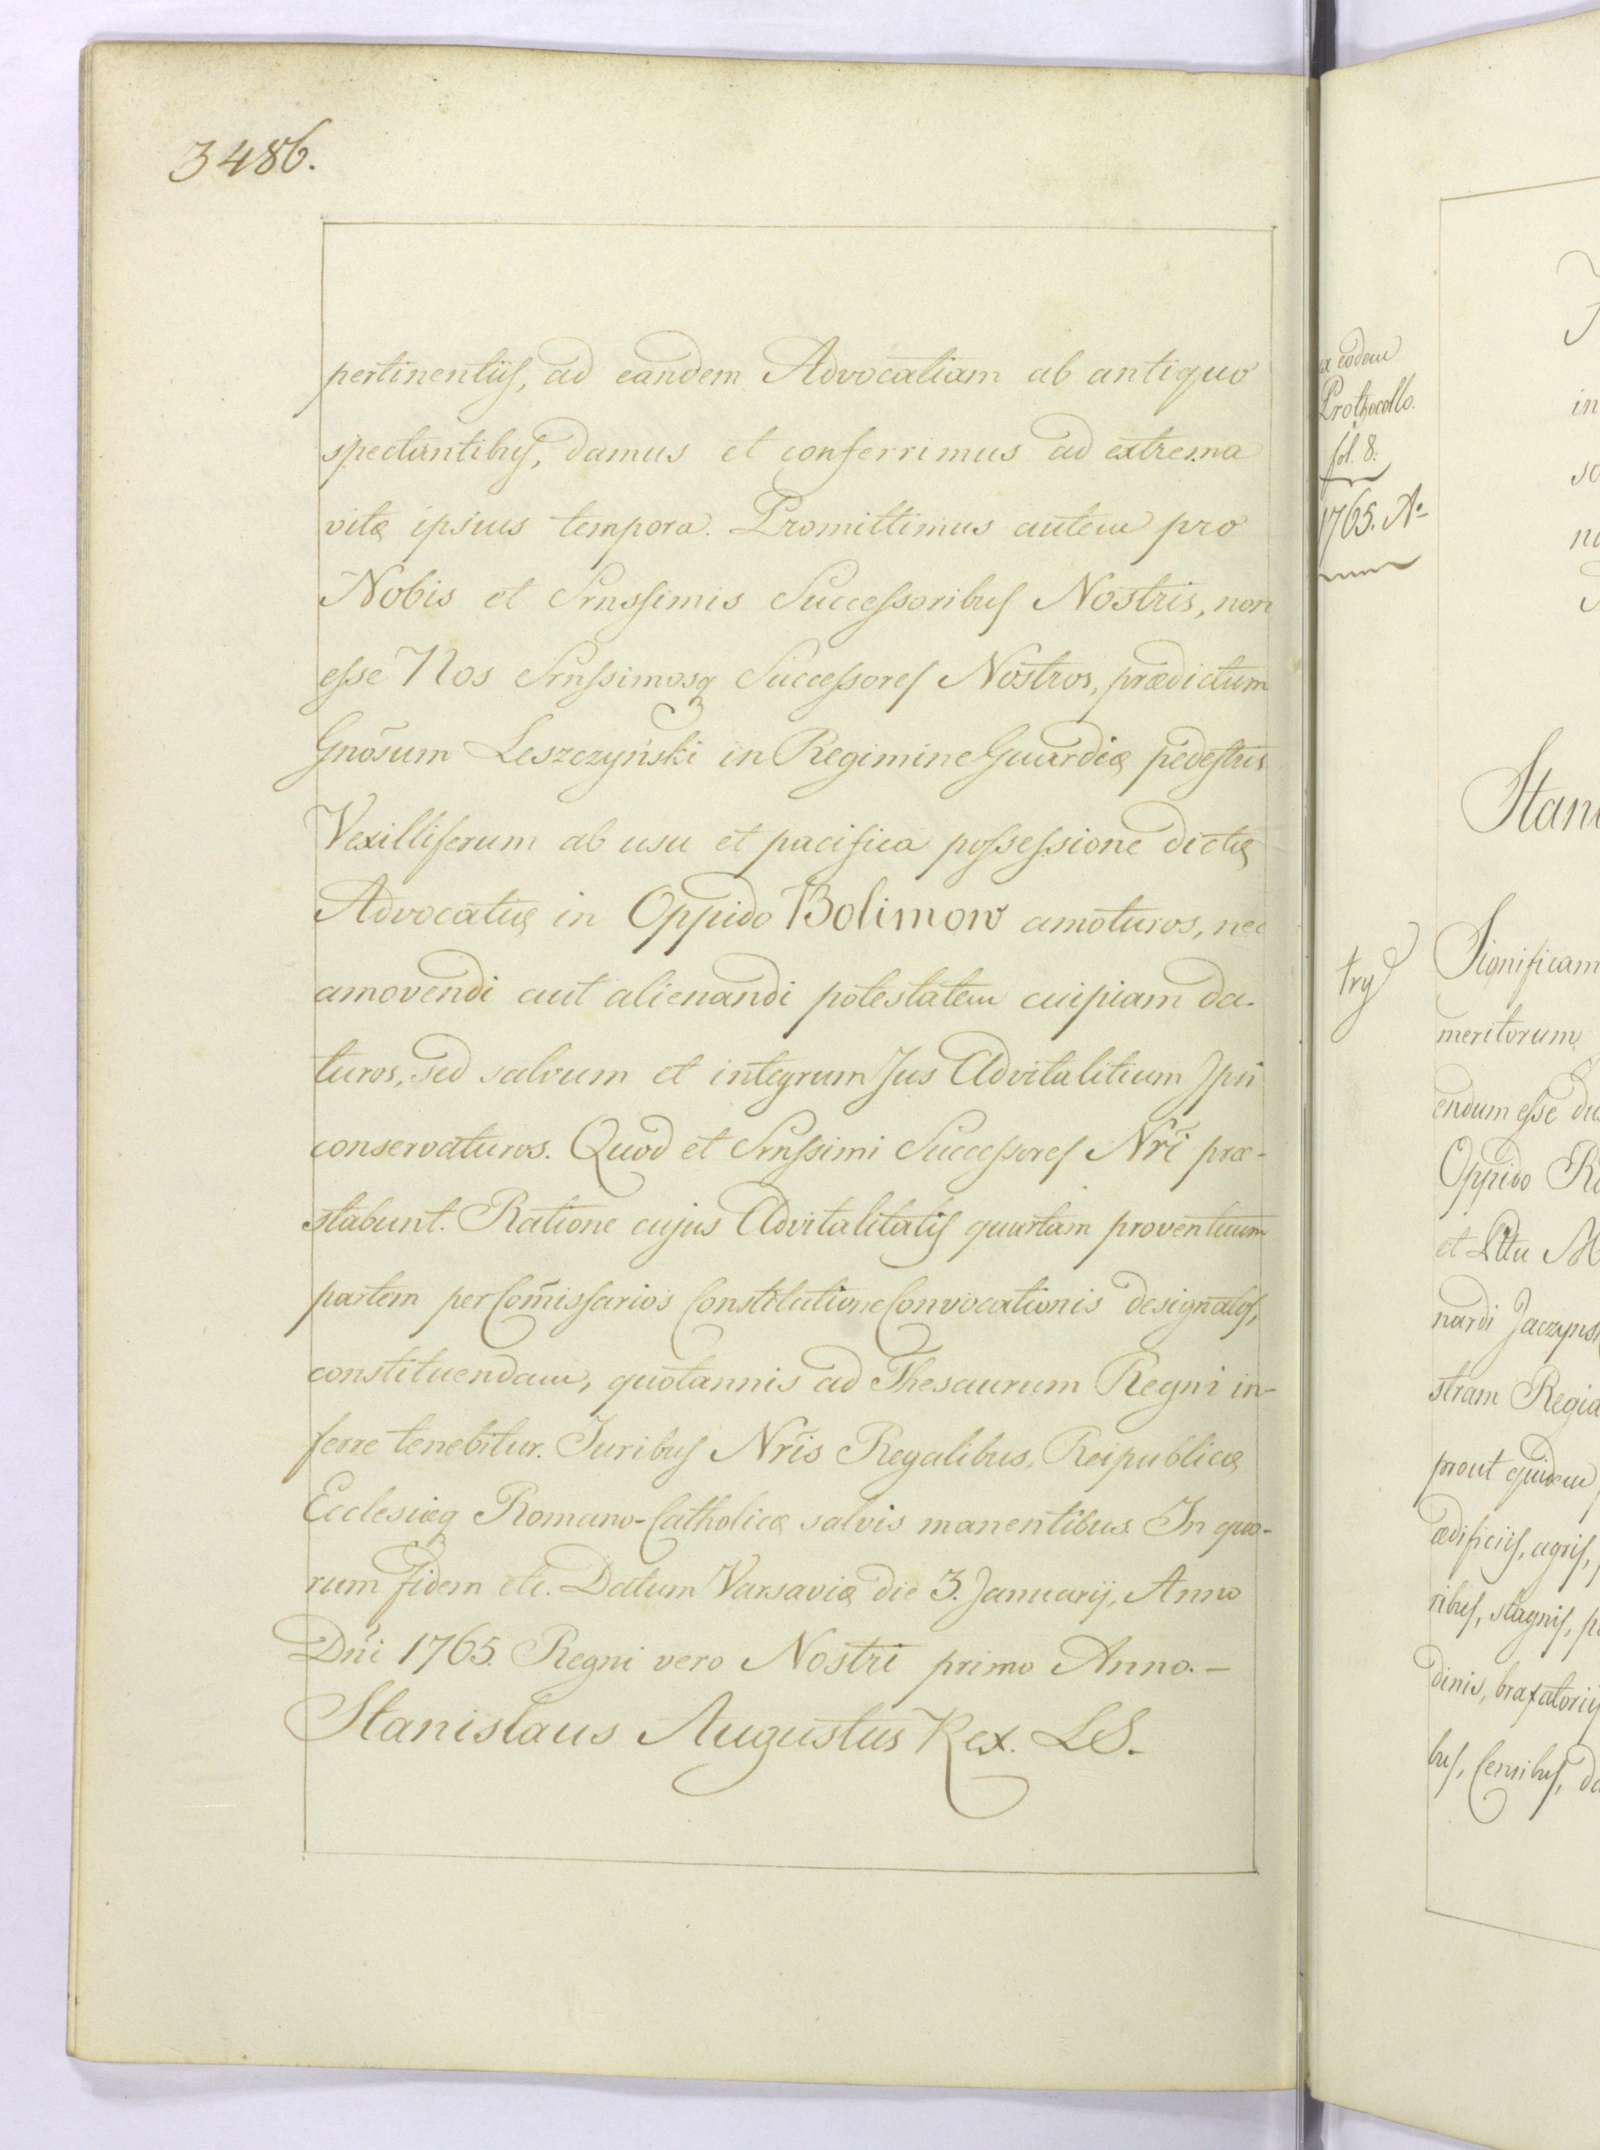 3486.
pertinentiis, ad eandem Advocatiam ab antiquo
spectantibus, damus et conferrimus ad extrema
vitæ ipsius tempora. Promittimus autem pro
Nobis et Srnssimis Successoribus Nostris, non
esse Nos Srnssimosq Successores Nostros, prædictum
Gnõsum Leszczyński in Regimine Guardiæ pedestris
Vexilliferum ab usu et pacifica possessione dictæ
Advocatiæ in Oppido Bolimow amoturos, nec
amovendi aut alienandi potestatem cuipiam da-
turos, sed salvum et integrum Jus Advitalitium Ipsi
conservaturos. Quod et Srnssimi Successores Nrĩ præ-
stabunt. Ratione cujus Advitalitatis quartam proventuum
partem per Com̃issarios Constitutione Convocationis designatos,
constituendam, quotannis ad Thesaurum Regni in-
ferre tenebitur. Juribus Nrĩs Regalibus, Reipublicæ
Ecclesiæq Romano-Catholicæ salvis manentibus. In quo-
rum fidem etc. Datum Varsaviæ die 3. Januarij, Anno
Dñi 1765. Regni vero Nostri primo Anno.-
Stanislaus Augustus Rex. LS.-
eodem
Prothocollo.
fol. 8.
1765. Aº
try
Significam
meritorum
endum esse du
Oppido
et
nardi Jaczyns
stram Regia
prout quidem
ædificiis, agris,
ribus, stagnis,
dinis, braxatoriis
bus, Censibus,